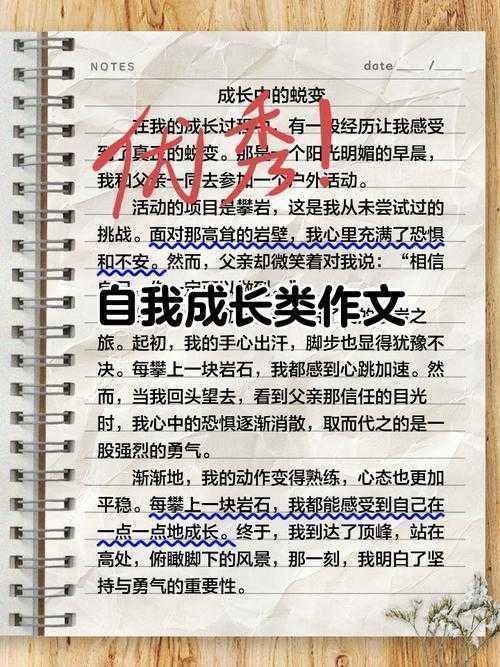 NOTES
date ___ /___
成长中的蜕变
在我的成长过程中，有一段经历让我感受
到了真正的蜕变。那是一个阳光明媚的早晨，
我和父亲一同去参加一个户外活动。
优秀！
活动的项目是攀岩，这是我从未尝试过的
挑战。面对那高耸的岩壁，我心里充满了恐惧
和不安。然而，父亲却微笑着对我说：“相信
自我成长类作文
旅。起初，我的手心出汗，脚步也显得犹豫不
决。每攀上一块岩石，我都感到心跳加速。然
而，当我回头望去，看到父亲那信任的目光
时，我心中的恐惧逐渐消散，取而代之的是一
股强烈的勇气。
渐渐地，我的动作变得熟练，心态也更加
平稳。每攀上一块岩石，我都能感受到自己在
一点一点地成长。终于，我到达了顶峰，站在
高处，俯瞰脚下的风景，那一刻，我明白了坚
持与勇气的重要性。